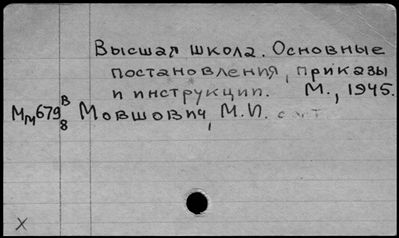 Высшая школа. Основные
постановления, приказы
и инструкции. М., 1945.
Мм679 В/8 Мовшович, М.И.
X